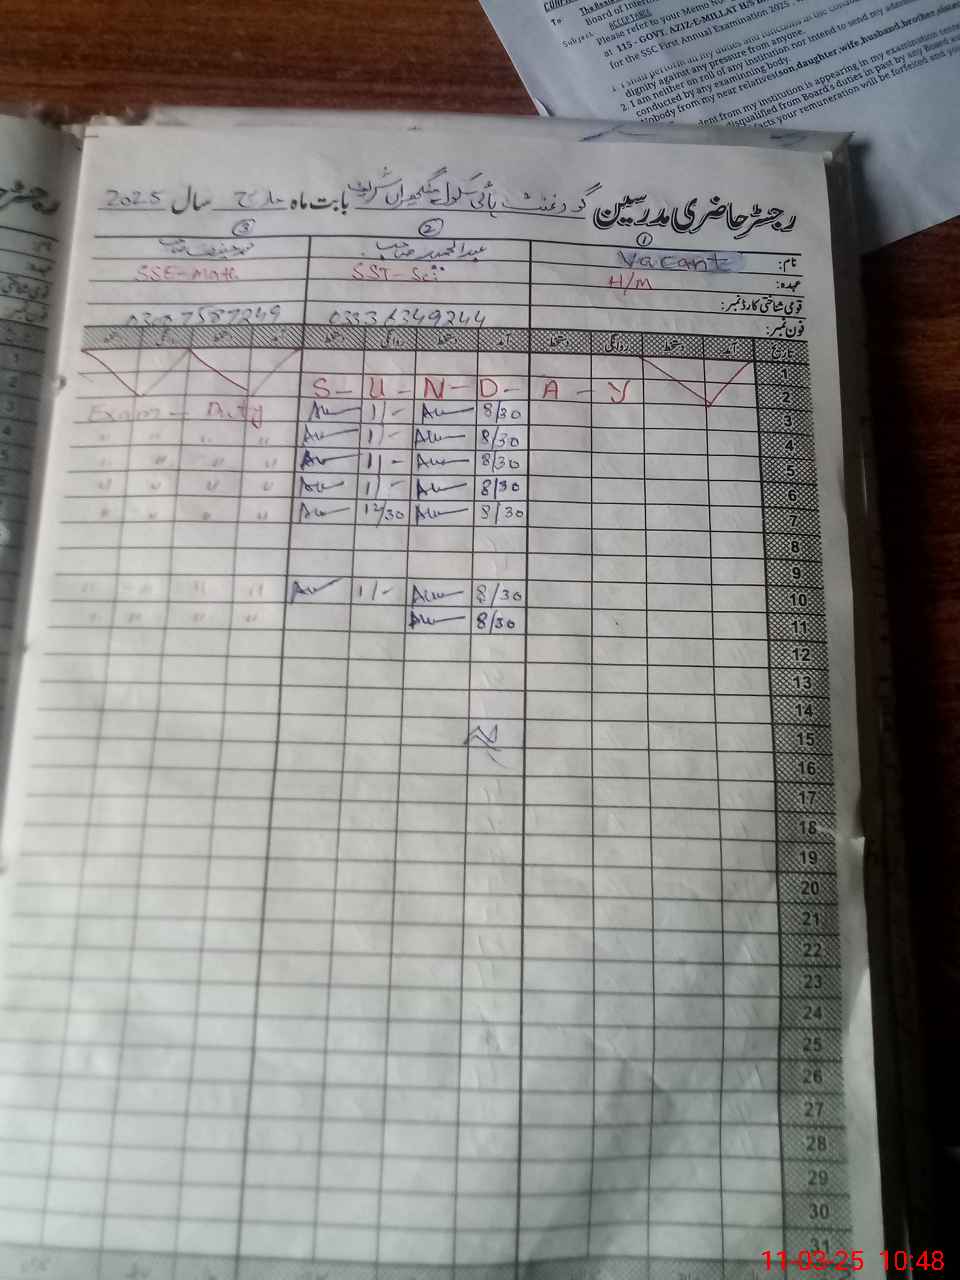 To
Board of Intern
Subject
Please refer to your Memo No
at 115 - GOVT. AZIZ-E-MILLAT H/S
for the SSC First Annual Examination 2025
1. I shall perform all my duties and functions
dignity against any pressure from anyone.
2. I am neither on roll of any institution nor intend to send my
conducted by any examining body.
Nobody from my near relatives(son,daughter,wife,husband,brother,sister
dent from my institution is appearing in my examination
disqualified from Board's duties in past by any Board
facts your remuneration will be forfeited and
رجسٹر حاضری مدرسین گورنمنٹ ہائی سکول شرقی بابت ماہ مارچ سال 2025
① ② ③
نام: Vacant عبدالحمید صاحب
عہدہ: H/M SST-Sci: SSE-Math
قومی شناختی کارڈ نمبر:
فون نمبر: 03336349244
تاریخ آمد دستخط روانگی دستخط آمد دستخط روانگی دستخط آمد دستخط روانگی دستخط
1
2 S - U - N - D - A - Y
3 8/30 1/- Exam - Duty
4 8/30 1/- " " " "
5 8/30 1/- " " " "
6 8/30 1/- " " " "
7 8/30 12/30 " " " "
8
9
10 8/30 1/- " " " "
11 8/30 " " " "
12
13
14
15
16
17
18
19
20
21
22
23
24
25
26
27
28
29
30
31
11-03-25 10:48